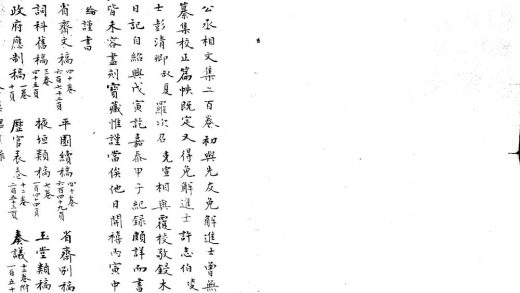 公丞相文集二百卷初與先友免解進士曾無
纂集校正篇帙既定又得免解進士許志伯凌
士彭清卿叔夏羅次召克宣相與覆校敬鋟木
日記自紹興戊寅訖嘉泰甲子紀録頗詳而書
皆未容盡刻寶藏惟謹當俟他日開禧丙寅中
綸謹書
省齋文稿四十卷六百七十三頁 平園續稿四十卷六百四十九頁 省齋別稿
詞科舊稿三卷四十五頁 掖垣類稿七卷一百四十四頁 玉堂類稿
政府應制稿一卷十頁 歷官表奏十二卷二百五十三頁 奏議十二卷附一百五十